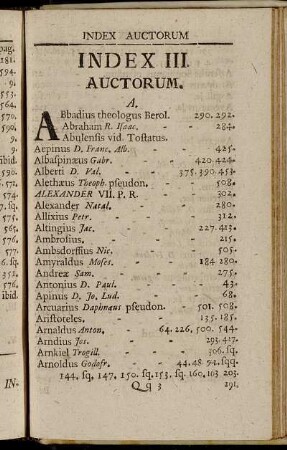 INDEX AUCTORUM
INDEX III.
AUCTORUM.
A.
ABbadius theologus Berol. 290. 292.
Abraham R. Isaac. - - 284.
Abulensis vid. Tostatus.
Aepinus D. Franc. Alb. - 425.
Albaspinæus Gabr. - 420. 424.
Alberti D. Val. 375. 390. 451.
Alethæus Theoph. pseudon. - 508.
ALEXANDER VII. P. R. - 302.
Alexander Natal. - - 280.
Allixius Petr. - - 312.
Altingius Jac. - - 227. 423.
Ambrosius. - - 215.
Ambsdorffius Nic. - - 505.
Amyraldus Moses. - 184. 280.
Andreæ Sam. - - 275.
Antonius D. Paul. - 43.
Apinus D. Jo. Lud. - - 68.
Arcuarius Daphnæus pseudon. 501. 508.
Aristoteles. - - 135. 185.
Arnaldus Anton. - 64. 226. 500. 544.
Arndius Jos. - - 293. 417.
Arnkiel Trogill. - - 506. sq.
Arnoldus Godofr. - 44. 48. 94. sqq.
144. sq. 147. 150. sq. 153. sq. 160. 163. 203.
Q q 3 291.
pag.
281.
594.
9.
553.
564.
570.
9.
9.
ibid.
574.
7. sq.
575.
565.
577.
576.
ibid.
IN-